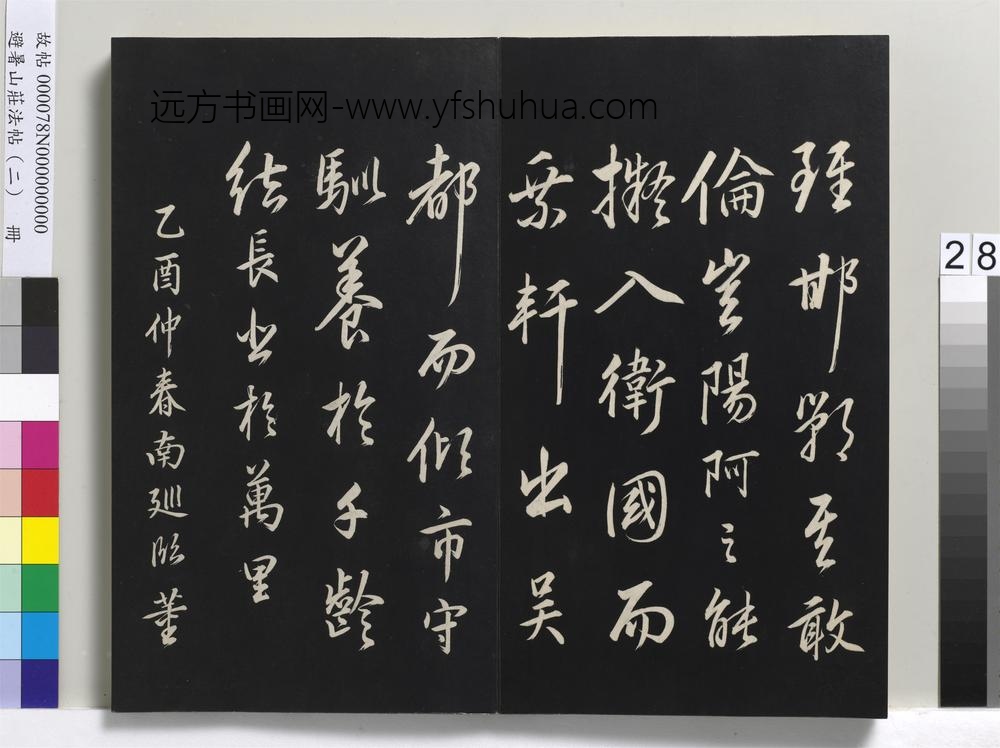 远方书画网-www.yfshuhua.com
雖邯鄲其敢
倫豈陽阿之能
擬入衛國而
乘軒出吳
都而傾市守
馴養於千齡
結長悲於萬里
乙酉仲春南巡臨董
故帖 000078N000000000
避暑山莊法帖（二） 冊
28